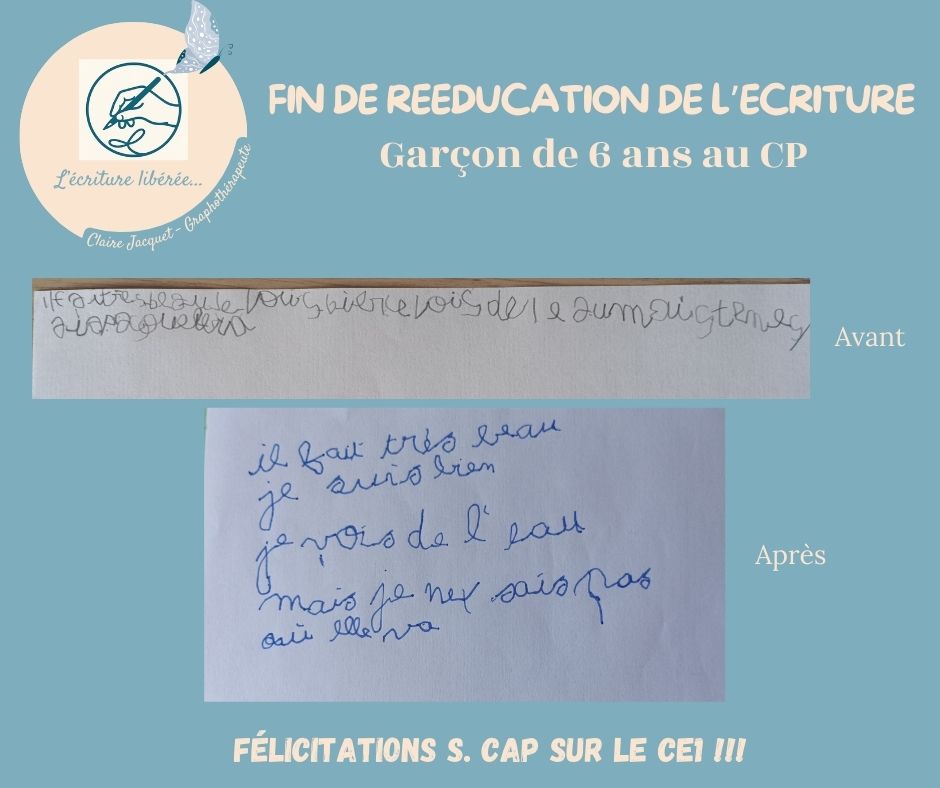 L'écriture libérée...
Claire Jacquet - Graphothérapeute
FIN DE REEDUCATION DE L'ECRITURE
Garçon de 6 ans au CP
Avant
il fait très beau
je suis bien
je vois de l'eau
mais je ne sais pas
où elle va
Après
FÉLICITATIONS S. CAP SUR LE CE1 !!!